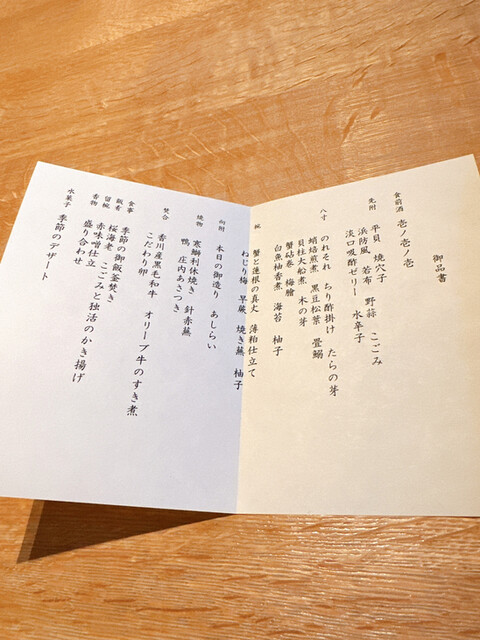 御品書
食前酒 壱ノ壱ノ壱
先附 平貝 焼穴子
浜防風 若布 野蒜 こごみ
淡口吸酢ゼリー 水辛子
八寸 のれそれ ちり酢掛け たらの芽
蛸焙煎煮 黒豆松葉 畳鰯
貝柱大船煮 木の芽
蟹砧巻 梅膾
白魚柚香煮 海苔 柚子
椀 蟹と蓮根の真丈 薄粕仕立て
ねじり梅 早蕨 焼き蕪 柚子
向附 本日の御造り あしらい
焼物 寒鰤利休焼き 針赤蕪
鴨 庄内あさつき
焚合 香川産黒毛和牛 オリーブ牛のすき煮
こだわり卵
食事 季節の御飯釜焚き
飯肴 桜海老 こごみと独活のかき揚げ
留椀 赤味噌仕立
香物 盛り合わせ
水菓子 季節のデザート